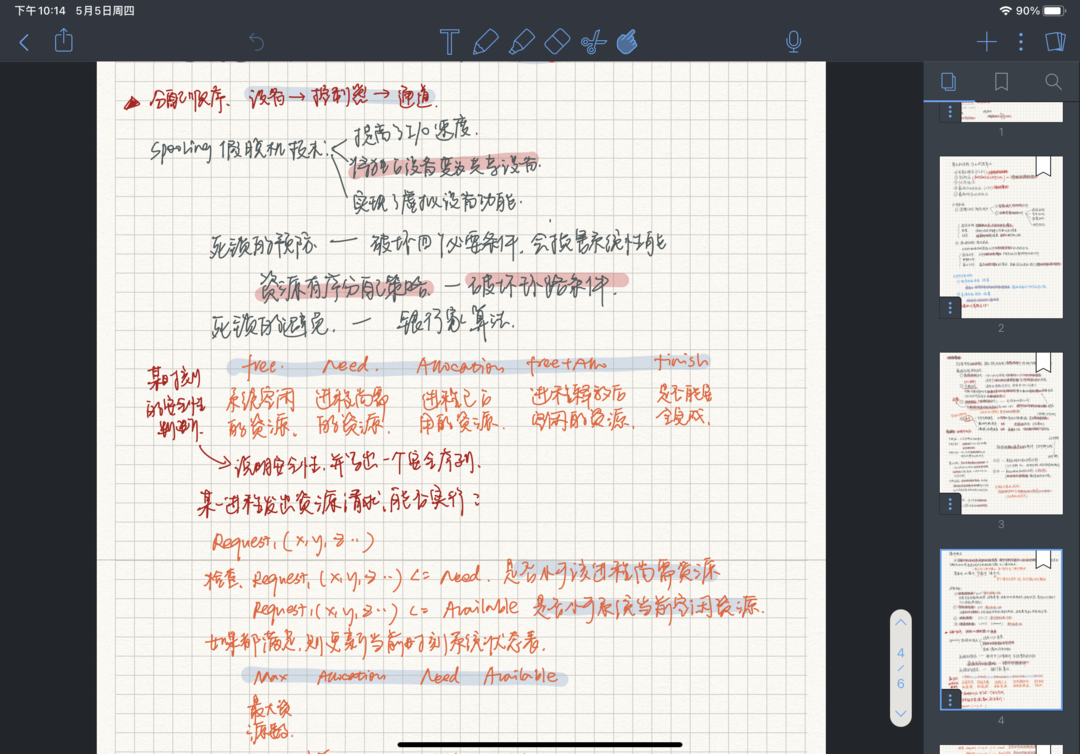 下午10:14 5月5日周四
90%
分配顺序、设备→控制器→通道.
Spooling 假脱机技术:
提高了I/O速度.
将独占设备变为共享设备.
实现了虚拟设备功能.
死锁的预防 — 破坏四个必要条件,会损害系统性能
资源有序分配策略 — 破坏环路条件.
死锁的避免. — 银行家算法.
某时刻的安全性判断.
free. Need. Allocation free+Allo finish
系统空闲的资源. 进程尚需的资源. 进程已占用的资源. 进程释放后空闲的资源. 是否能全完成.
→说明安全性,并写出一个安全序列.
某一进程发出资源请求,能否实行:
Request₁(x,y,z…)
检查. Request₁(x,y,z…) <= Need. 是否小于该进程尚需资源
Request₁(x,y,z…) <= Available 是否小于系统当前空闲资源.
如果都满足,则更新当前时刻系统状态表.
Max Allocation Need Available
最大资源数.
1
2
3
4
4
/
6